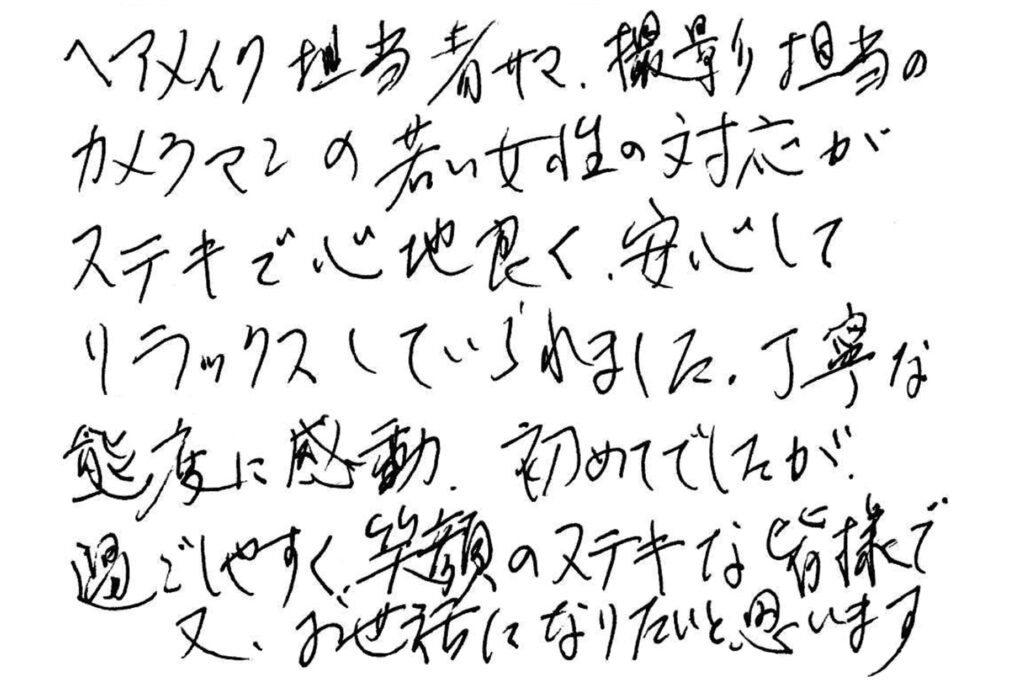 ヘアメイク担当者サマ、撮影担当の
カメラマンの若い女性の対応が
ステキで心地良く、安心して
リラックスしていられました。丁寧な
態度に感動。初めてでしたが、
過ごしやすく、笑顔のステキな皆様で
又、お世話になりたいと思います